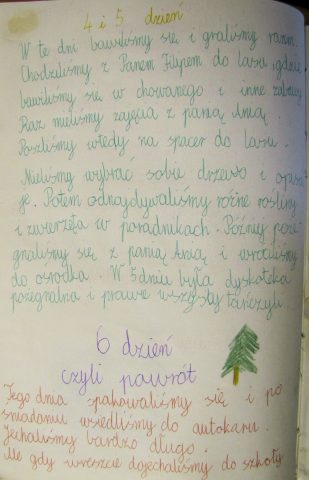 4 i 5 dzień
W te dni bawiliśmy się i graliśmy razem.
Chodziliśmy z Panem Filipem do lasu gdzie
bawiliśmy się w chowanego i inne zabawy
Raz mieliśmy zajęcia z panią Anią.
Poszliśmy wtedy na spacer do lasu.
Mieliśmy wybrać sobie drzewo i opisa
je. Potem odnajdywaliśmy różne rośliny
i zwierzęta w poradnikach. Później poże
gnaliśmy się z panią Anią i wróciliśmy
do ośrodka. W 5 dniu była dyskoteka
pożegnalna i prawie wszyscy tańczyli.
6 dzień
czyli powrót
Tego dnia spakowaliśmy się i po
śniadaniu wsiedliśmy do autokaru.
Jechaliśmy bardzo długo.
Ale gdy wreszcie dojechaliśmy do szkoły